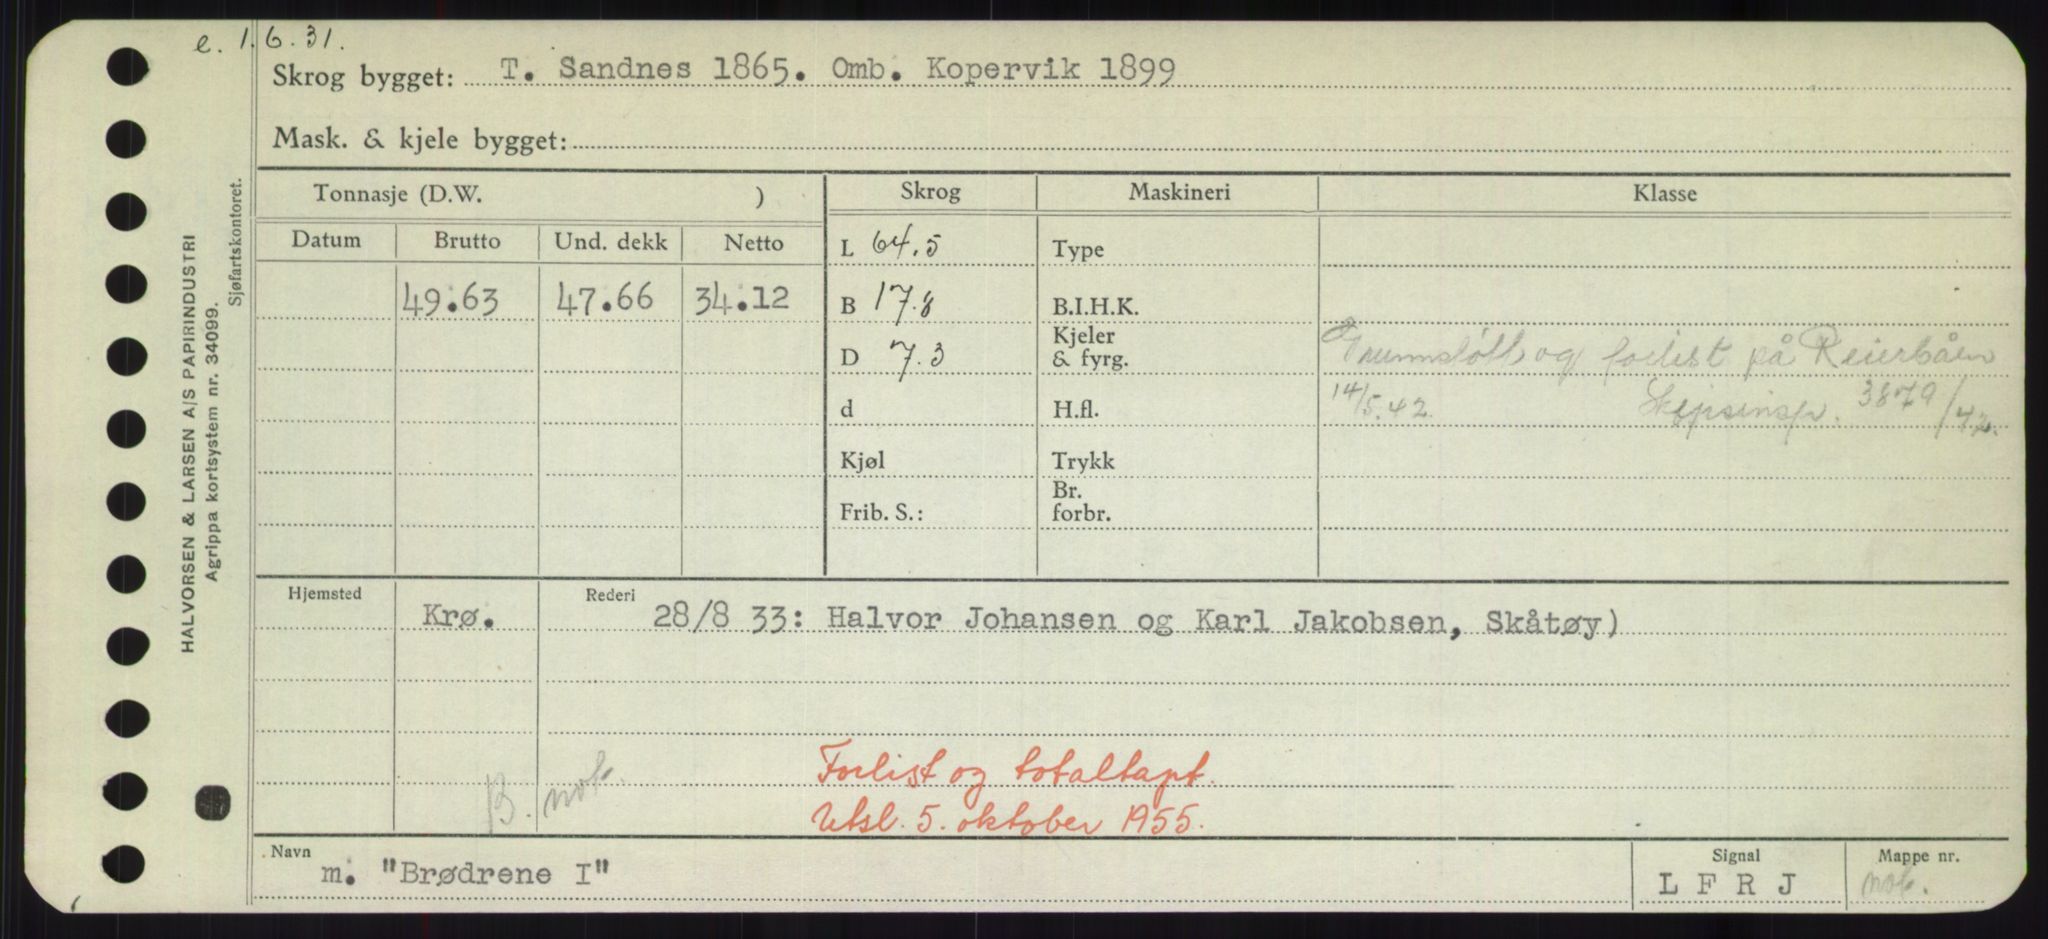 e. 1.6.31.
Skrog bygget: T. Sandnes 1865. Omb. Kopervik 1899
Mask. & kjele bygget:
HALVORSEN & LARSEN A/S PAPIRINDUSTRI
Agrippa kortsystem nr. 34099.
Sjøfartskontoret.
Tonnasje (D.W. ) Skrog Maskineri Klasse
Datum Brutto Und. dekk Netto L 64.5 Type
49.63 47.66 34.12 B 17.8 B.I.H.K.
D 7.3 Kjeler & fyrg. Grunnstøtt og forlist på Reierbåen
d H.fl. 14/5.42. Skipsinsp. 3879/42.
Kjøl Trykk
Frib. S.: Br. forbr.
Hjemsted Rederi
Krø. 28/8 33: Halvor Johansen og Karl Jakobsen, Skåtøy)
B. not.
Forlist og totaltapt.
Utsl. 5. oktober 1955.
Navn Signal Mappe nr.
m. "Brødrene I" L F R J not.